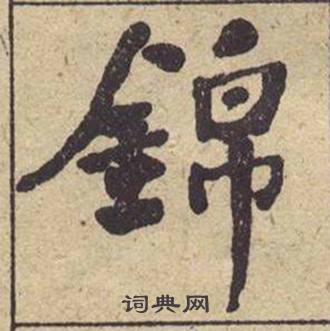 錦
词典网